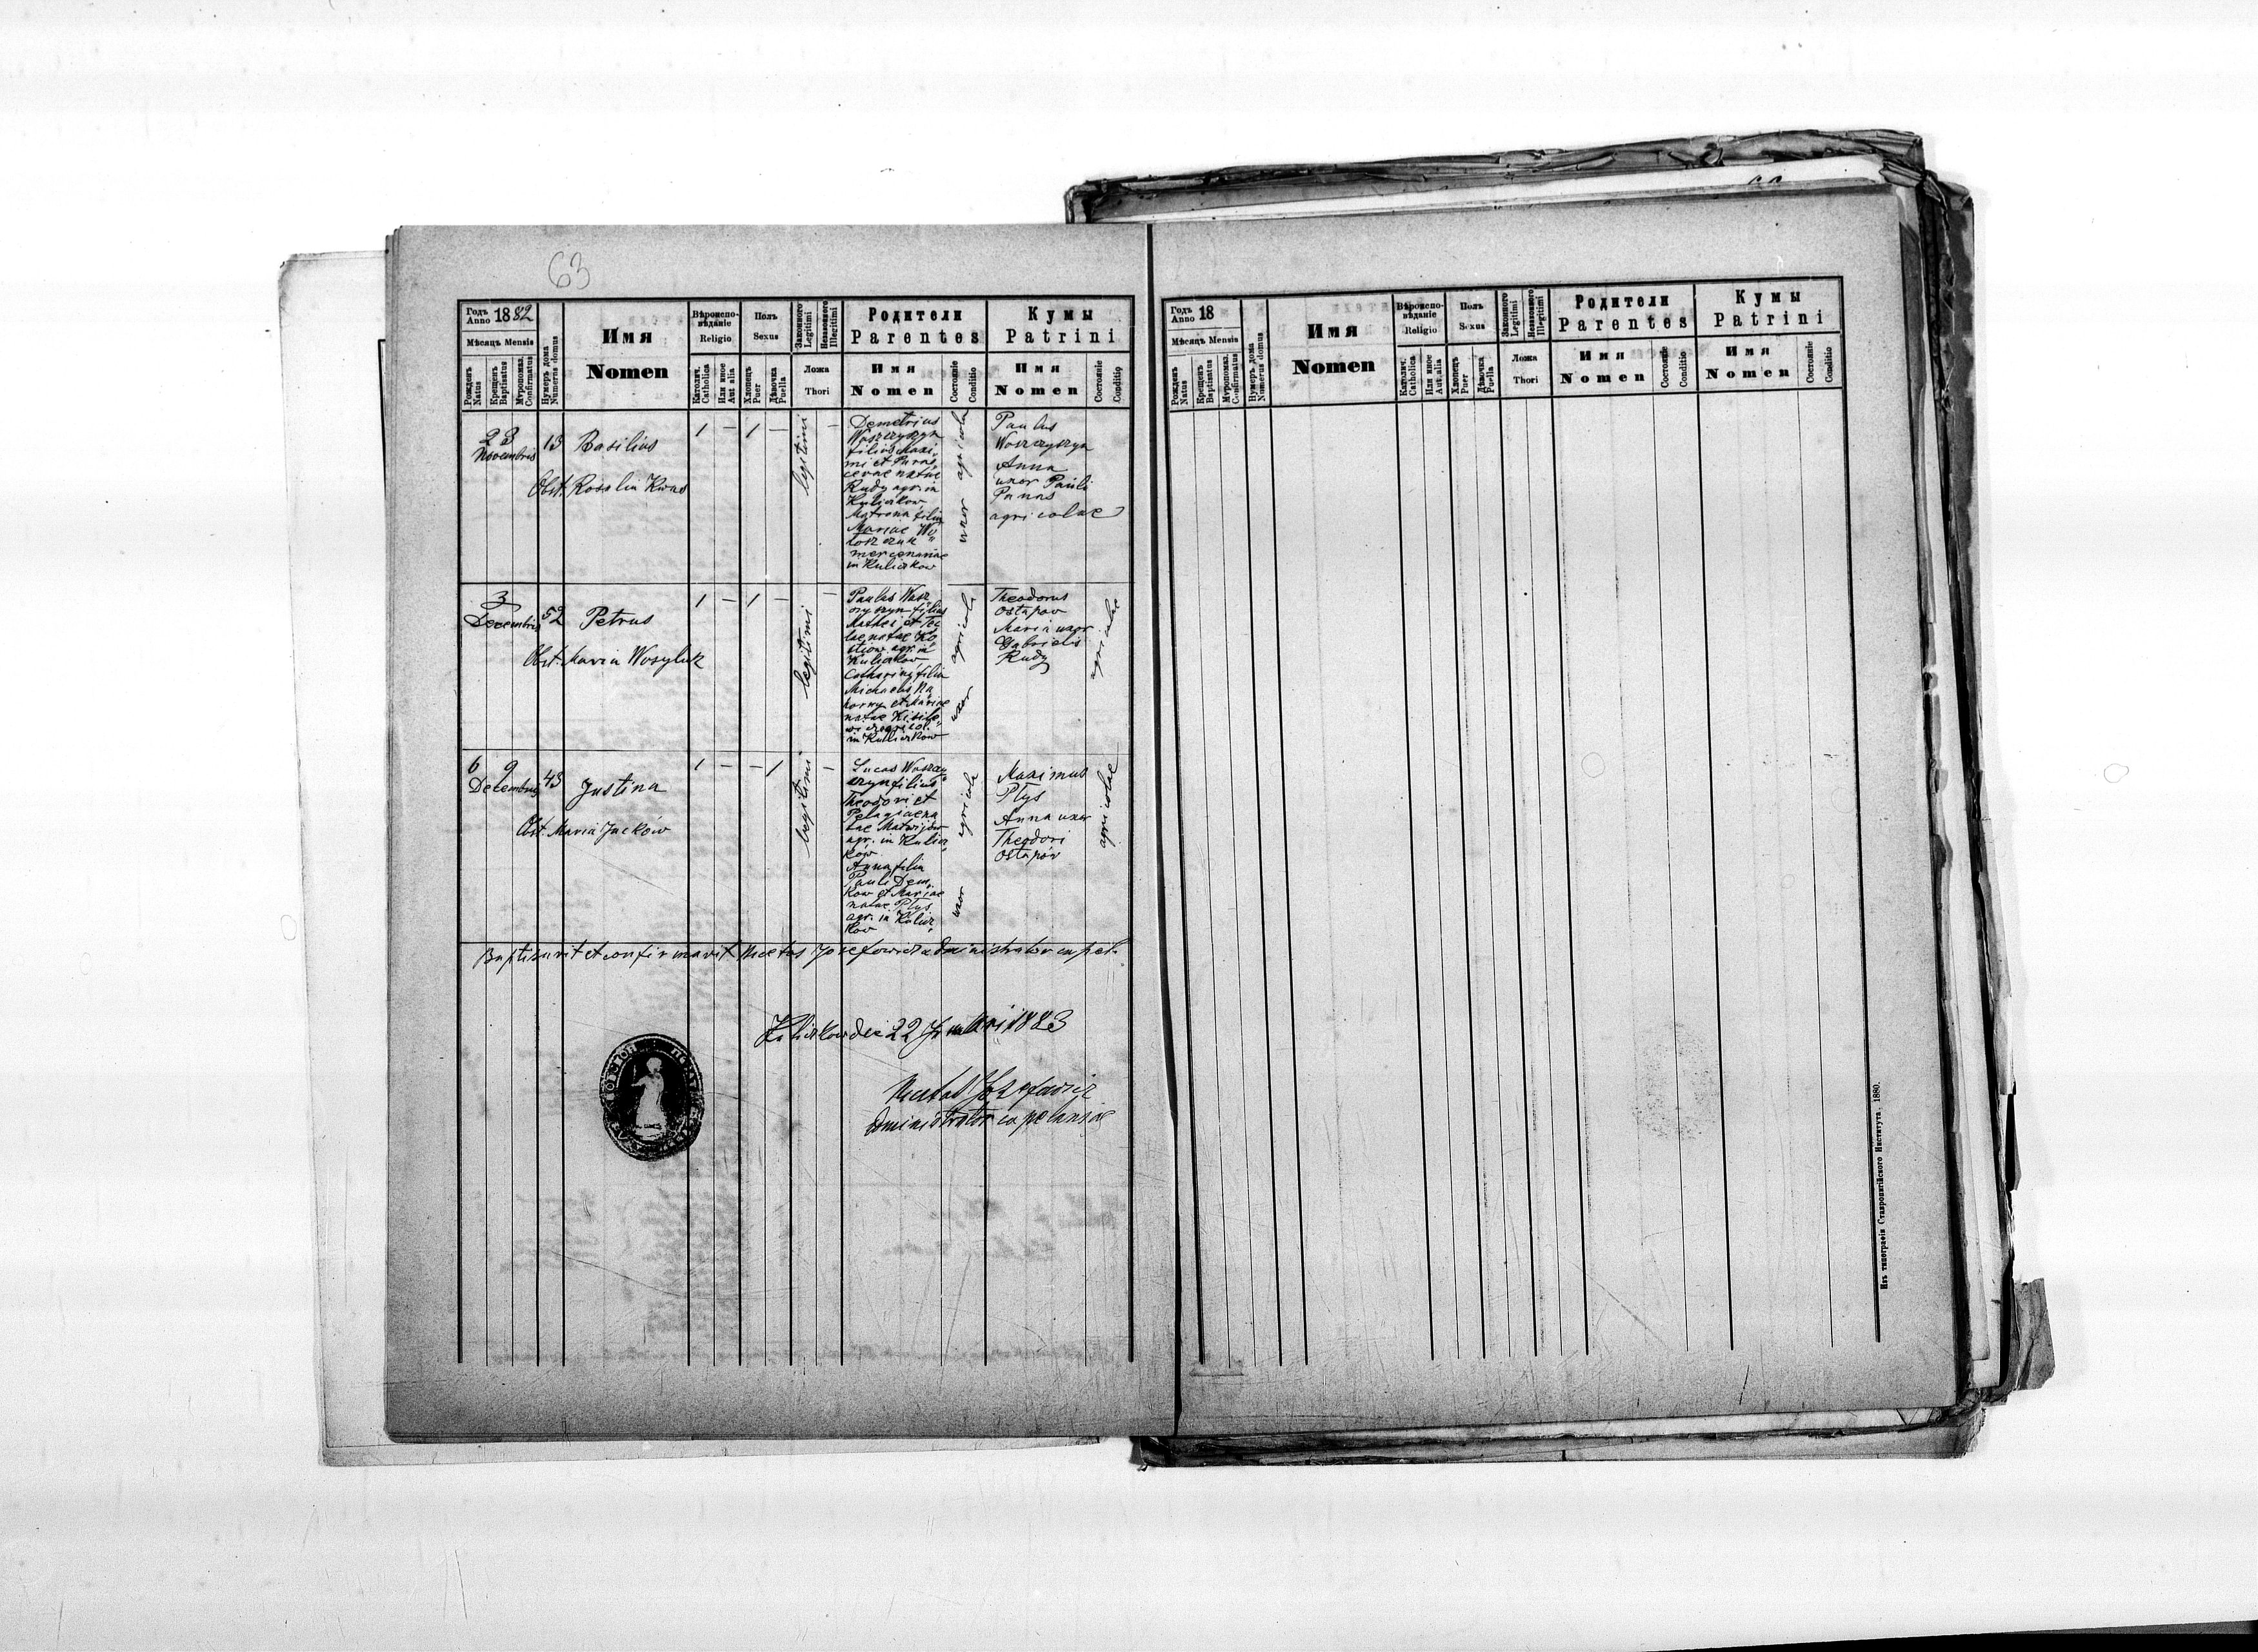 63
Годъ Anno 1882
Мѣсяцъ Mensis
Рожденъ Natus
Крещенъ Baptisatus
Мѵропомаз. Confirmatus
Нумеръ дома Numerus domus
Имя
Nomen
Вѣроиспо-
вѣданіе
Religio
Католич. Catholica
Или иное Aut alia
Полъ
Sexus
Хлопецъ Puer
Дѣвочка Puella
Законного Legitimi
Незаконного Illegitimi
Ложа
Thori
Родители
Parentes
Имя
Nomen
Состояніе Conditio
Кумы
Patrini
Имя
Nomen
Состояніе Conditio
23
Novembris
13 Basilius
Obst. Rosalia
1 – 1 –
legitimi
–
Demetrius
Woszczyszyn
filius Maxi
mi et Paras
cevae natae
Rudy agr. in
Kuliczkow
Matrona filia
Mariae Wo
toszczuk
mercenariae
in Kuliczkow
agricola
uxor
Paulus
Woszczyszyn
Anna
uxor Pauli
Panas
agricolae
3
Decembris
52 Petrus
Obst. Maria Wasyluk
1 – 1 –
legitimi
–
Paulus Wosz
czyszyn filius
Mathei et Tec
lae natae Ko
agr. in
Kuliczkow
Catharina filia
Michaelis Na
horny et Mariae
natae
in Kuliczkow
agricola
uxor
Theodorus
Ostapow
Maria uxor
Gabrielis
Rudy
agricolae
6 9
Decembris
43 Justina
Obst. Maria Jacków
1 – – 1
legitimi
–
Lucas Woszczy
szyn filius
Theodori et
Pelagiae na
tae Matwijów
agr. in Kulicz
kow
Anna filia
Pauli Dem
kow et Mariae
natae Ptys
agr. in Kulicz
kow
agricola
uxor
Maximus
Ptys
Anna uxor
Theodori
Ostapów
agricolae
Baptisavit et confirmavit Nicetas Josefowicz administrator capel.
Kuliczkow die 22 Januari 1883
Nicetas Josefowicz
administrator capelaniae
Годъ Anno 18
Мѣсяцъ Mensis
Рожденъ Natus
Крещенъ Baptisatus
Мѵропомаз. Confirmatus
Нумеръ дома Numerus domus
Имя
Nomen
Вѣроиспо-
вѣданіе
Religio
Католич. Catholica
Или иное Aut alia
Полъ
Sexus
Хлопецъ Puer
Дѣвочка Puella
Законного Legitimi
Незаконного Illegitimi
Ложа
Thori
Родители
Parentes
Имя
Nomen
Состояніе Conditio
Кумы
Patrini
Имя
Nomen
Состояніе Conditio
Изъ типографіи Ставропигійского Института. 1880.